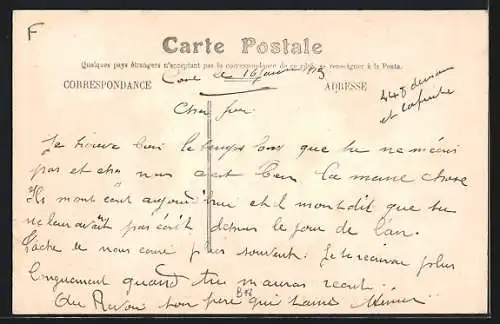 F
Carte Postale
Quelques pays étrangers n'acceptant pas la correspondance de ce côté, se renseigner à la Poste.
CORRESPONDANCE
ADRESSE
le 16
Cher
Je trouve bien le temps long que tu ne m'écris
pas et chez nous c'est bien la même chose
Ils m'ont écrit aujourd'hui et il m'ont dit que tu
ne leur avait pas écrit depuis le jour de l'an.
Tâche de nous écrire plus souvent. Je te récrirai plus
longuement quand tu m'auras récrit.
Au Revoir ton père qui t'aime
B78